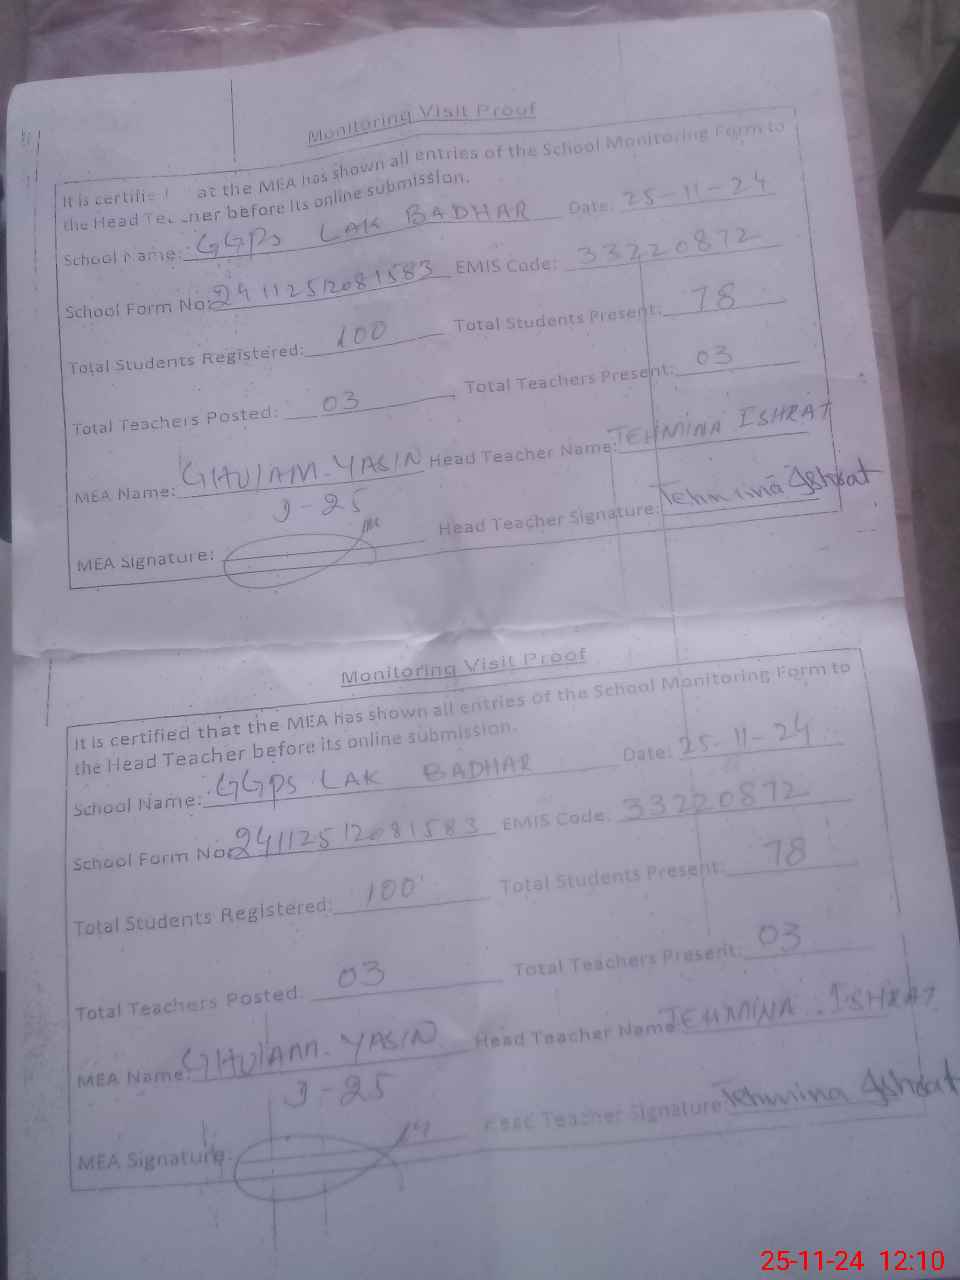 Monitoring Visit Proof
It is certifie at the MEA has shown all entries of the School Monitoring Form to
the Head Teacher before its online submission.
School Name: GGPS LAK BADHAR Date: 25-11-24
School Form No: 24112512081583 EMIS Code: 33220872
Total Students Registered: 100 Total Students Present: 78
Total Teachers Posted: 03 Total Teachers Present: 03
MEA Name: GHULAM.YASIN Head Teacher Name: TEHMINA ISHRAT
MEA Signature: Head Teacher Signature: Tehmina Ishrat
Monitoring Visit Proof
It is certified that the MEA has shown all entries of the School Monitoring Form to
the Head Teacher before its online submission.
School Name: GGPS LAK BADHAR Date: 25-11-24
School Form No: 24112512081583 EMIS Code: 33220872
Total Students Registered: 100 Total Students Present: 78
Total Teachers Posted: 03 Total Teachers Present: 03
MEA Name: GHULAM.YASIN Head Teacher Name TEHMINA.ISHRAT
MEA Signature: Head Teacher Signature: Tehmina Ishrat
25-11-24 12:10